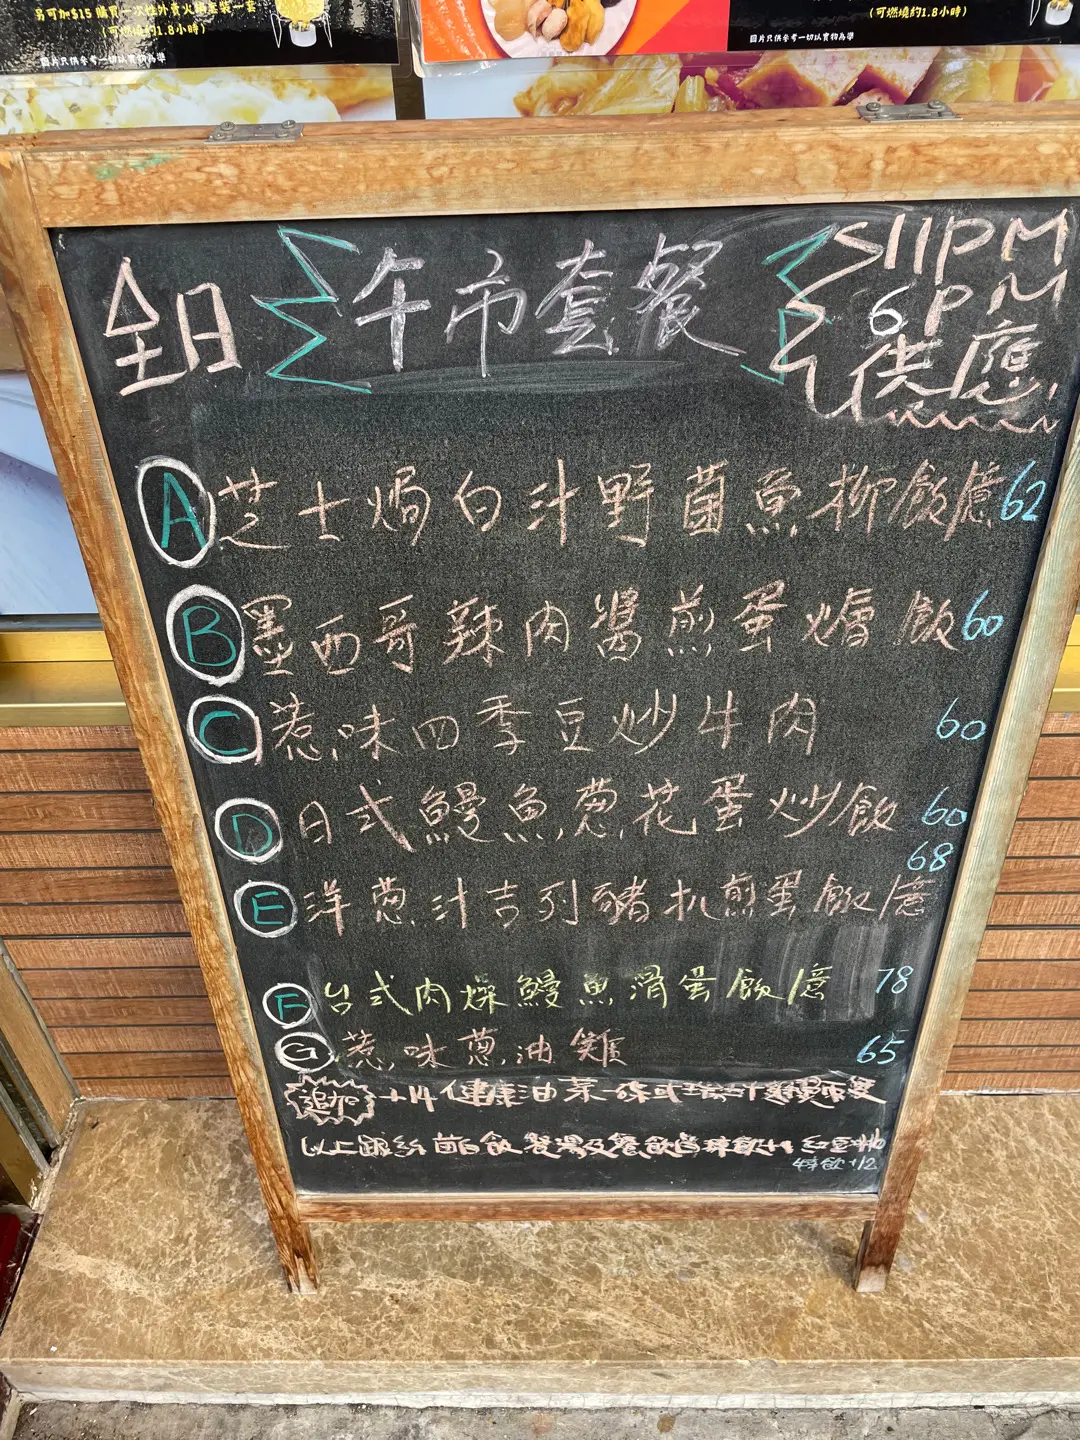 另可加$15 購買一次性外賣火鍋套裝一套
(可燃燒約1.8小時)
圖片只供參考一切以實物為準
(可燃燒約1.8小時)
圖片只供參考一切以實物為準
全日 午市套餐
11PM
6PM
供應
A 芝士焗白汁野菌魚柳飯/意 62
B 墨西哥辣肉醬煎蛋燴飯 60
C 惹味四季豆炒牛肉 60
D 日式鰻魚蔥花蛋炒飯 60
E 洋蔥汁吉列豬扒煎蛋飯/意 68
F 台式肉燥鰻魚滑蛋飯/意 78
G 惹味蔥油雞 65
追加 +14 健康油菜一碟或
以上 白飯 餐湯及餐飲
特飲+12